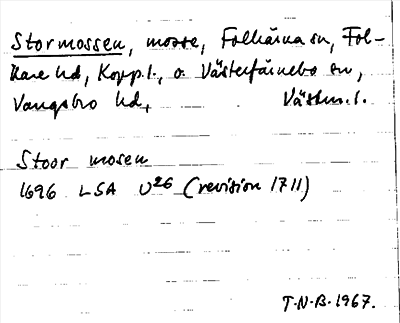 Stormossen, mosse, Folkärna sn, Fol-
kare hd, Kopp.l., o. Västerfärnebo sn,
Vangsbro hd, Västm.l.
Stoor mosen
1696 LSA U26 (revision 1711)
T.N.B. 1967.